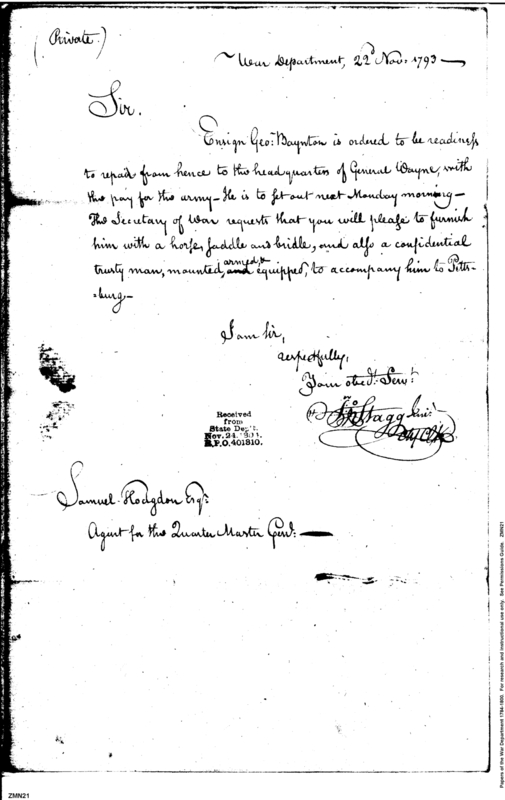 (Private.)
War Department, 22d Nov. 1793
Sir.
Ensign Geo: Baynton is ordered to be readiness
to repair from hence to the head quarters of General Wayne, with
the pay for the army - He is to set out next Monday morning -
The Secretary of War requests that you will please to furnish
him with a horse, saddle and bridle, and also a confidential
trusty man, mounted, armed & and equipped, to accompany him to Pitts-
=burg -
I am Sir,
respectfully,
Your obedt. Servt.
Jno Stagg Junr.
Received
from
State Dep't.
Nov. 24.
R.P.O. 401810.
Samuel Hodgdon Esqr.
Agent for the Quarter Master Genl:
ZMN21
Papers of the War Department 1784-1800. For research and instructional use only. See Permissions Guide. ZMN21